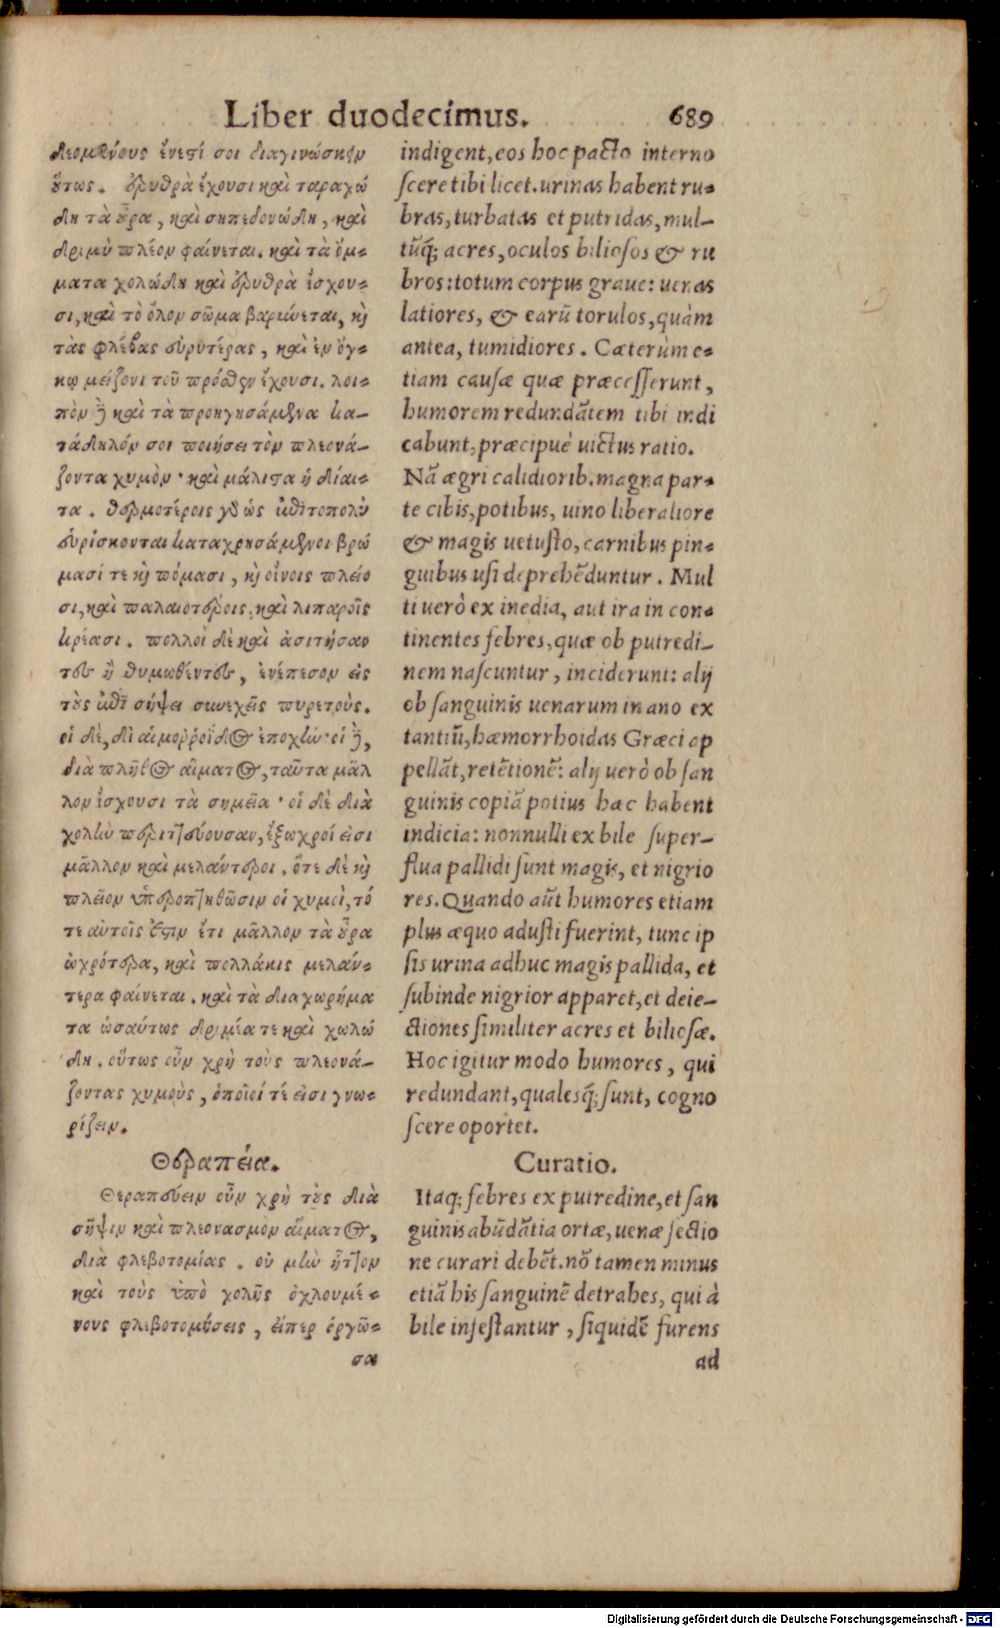 Liber duodecimus. 689
δεομένους ἔνεστί σοι διαγινώσκειν
οὕτως. ἐρυθρὰ ἔχουσι καὶ ταραχώ
δη τὰ οὖρα, καὶ σηπεδονώδη, καὶ
δριμὺ πλέον φαίνεται. καὶ τὰ ὄμ-
ματα χολώδη καὶ ἐρυθρὰ ἴσχου-
σι, καὶ τὸ ὅλον σῶμα βαρύνεται, καὶ
τὰς φλέβας εὐρυτέρας, καὶ ἐν ὄγ-
κῳ μείζονι τοῦ πρόσθεν ἔχουσι. λοι-
πὸν δὲ καὶ τὰ προηγησάμενα κα-
τάδηλόν σοι ποιήσει τὸν πλεονά-
ζοντα χυμὸν· καὶ μάλιστα ἡ δίαι-
τα. θερμοτέροις γὰρ ὡς ἐπιτοπολὺ
εὑρίσκονται καταχρησάμενοι βρώ
μασί τε καὶ πόμασι, καὶ οἴνοις πλείο
σι, καὶ παλαιοτέροις, καὶ λιπαροῖς
κρέασι. πολλοὶ δὲ καὶ ἀσιτήσαν
τες ἢ θυμωθέντες, ἐνέπεσον εἰς
τοὺς ἐπὶ σήψει συνεχεῖς πυρετούς.
οἱ δὲ, δι αἱμορροΐδος ἐποχὴν· οἱ δὲ,
διὰ πλῆθος αἵματος, ταῦτα μᾶλ
λον ἴσχουσι τὰ σημεῖα· οἱ δὲ διὰ
χολὴν περιττεύουσαν, ἔξωχροί εἰσι
μᾶλλον καὶ μελάντεροι. ὅτε δὲ καὶ
πλεῖον ὑπεροπτηθῶσιν οἱ χυμοὶ, τό
τε αὐτοῖς ἐστιν ἔτι μᾶλλον τὰ οὖρα
ὠχρότερα, καὶ πολλάκις μελάν-
τερα φαίνεται. καὶ τὰ διαχωρήμα
τα ὡσαύτως δριμέα τε καὶ χωλώ
δη. οὕτως οὖν χρὴ τοὺς πλεονά-
ζοντας χυμοὺς, ὁποῖοί τέ εἰσι γνω-
ρίζειν.
Θεραπεία.
Θεραπεύειν οὖν χρὴ τοὺς διὰ
σῆψιν καὶ πλεονασμὸν αἵματος,
διὰ φλεβοτομίας. οὐ μὴν ἧττον
καὶ τοὺς ὑπὸ χολῆς ὀχλουμέ-
νους φλεβοτομήσεις, εἴπερ ὀργῶ-
σα
indigent, eos hoc pacto interno
scere tibi licet. urinas habent ru-
bras, turbatas et putridas, mul-
tũq́; acres, oculos biliosos & ru
bros: totum corpus graue: uenas
latiores, & earũ torulos, quàm
antea, tumidiores. Cæterùm e-
tiam causæ quæ præcesserunt,
humorem redundãtem tibi indi
cabunt, præcipuè uictus ratio.
Nã ægri calidiorib. magna par-
te cibis, potibus, uino liberaliore
& magis uetusto, carnibus pin-
guibus usi deprehẽduntur. Mul
ti uerò ex inedia, aut ira in con-
tinentes febres, quæ ob putredi-
nem nascuntur, inciderunt: alij
ob sanguinis uenarum in ano ex
tantiũ, hæmorrhoidas Græci ap
pellãt, retẽtionẽ: alij uerò ob san
guinis copiã potius hæc habent
indicia: nonnulli ex bile super-
flua pallidi sunt magis, et nigrio
res. Quando aũt humores etiam
plus æquo adusti fuerint, tunc ip
sis urina adhuc magis pallida, et
subinde nigrior apparet, et deie-
ctiones similiter acres et biliosæ.
Hoc igitur modo humores, qui
redundant, qualesq́; sunt, cogno
scere oportet.
Curatio.
Itaq; febres ex putredine, et san
guinis abũdãtia ortæ, uenæ sectio
ne curari debẽt. nõ tamen minus
etiã his sanguinẽ detrahes, qui à
bile infestantur, siquidẽ furens
ad
Digitalisierung gefördert durch die Deutsche Forschungsgemeinschaft - DFG